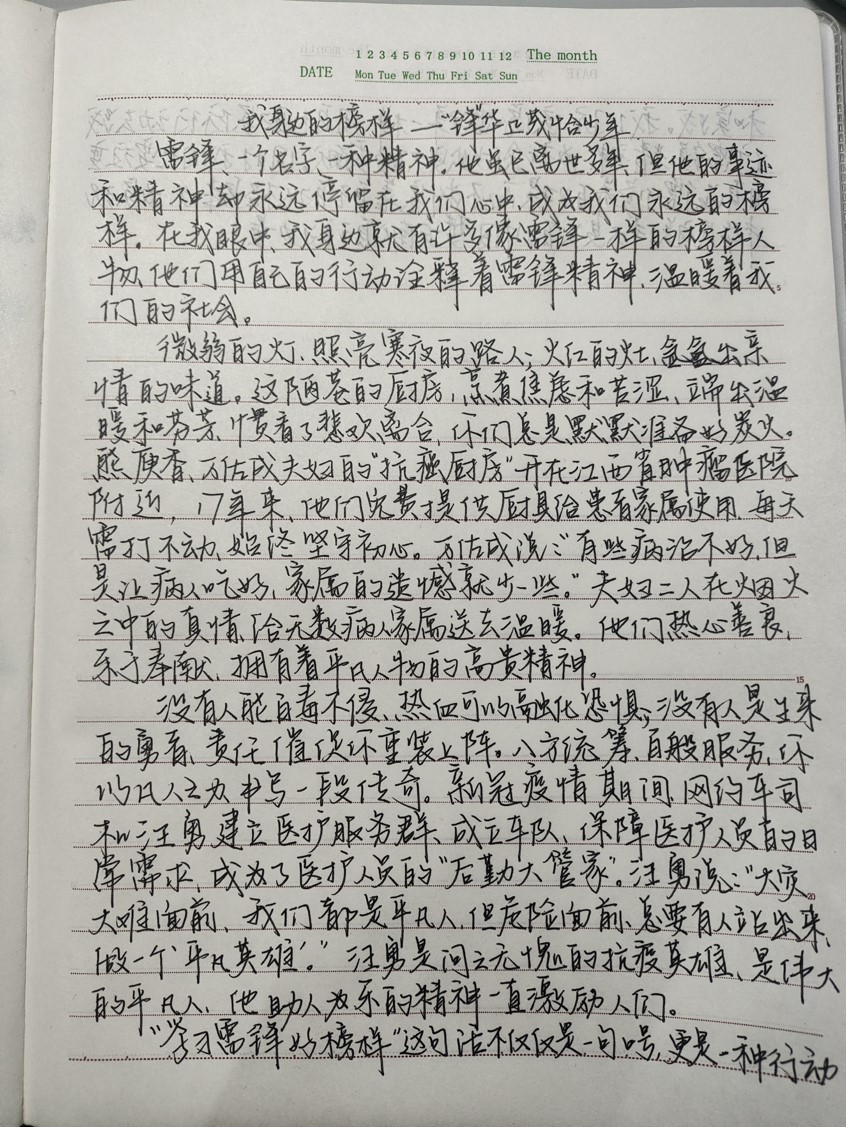 1 2 3 4 5 6 7 8 9 10 11 12 The month
DATE Mon Tue Wed Thu Fri Sat Sun
我身边的榜样——“锋”华正茂恰少年
雷锋、一个名字、一种精神。他虽已离世多年,但他的事迹
和精神却永远停留在我们心中,成为我们永远的榜
样。在我眼中,我身边就有许多像雷锋一样的榜样人
物,他们用自己的行动诠释着雷锋精神,温暖着我
们的社会。
微弱的灯,照亮寒夜的路人;火红的灶,氤氲出亲
情的味道。这陋巷的厨房,烹煮焦急和苦涩,端出温
暖和芬芳,惯看了悲欢离合,你们总是默默准备好炭火。
熊庚香、万佐成夫妇的“抗癌厨房”开在江西省肿瘤医院
附近,17年来,他们免费提供厨具给患者家属使用,每天
雷打不动,始终坚守初心。万佐成说:“有些病治不好,但
是让病人吃好,家属的遗憾就少一些。”夫妇二人在烟火
之中的真情,给无数病人家属送去温暖。他们热心善良,
乐于奉献,拥有着平凡人物的高贵精神。
15
没有人能百毒不侵,热血可以融化恐惧;没有人是生来
的勇者,责任催促你重装上阵。八方统筹,百般服务,你
以凡人之力书写一段传奇。新冠疫情期间,网约车司
机汪勇建立医护服务群、成立车队,保障医护人员的日
常需求,成为了医护人员的“后勤大管家”。汪勇说:“大灾
20
大难面前,我们都是平凡人,但危险面前,总要有人站出来,
做一个‘平凡英雄’。”汪勇是问之无愧的抗疫英雄,是伟大
的平凡人,他助人为乐的精神一直激励人们。
“学习雷锋好榜样”这句话不仅仅是一句口号,更是一种行动